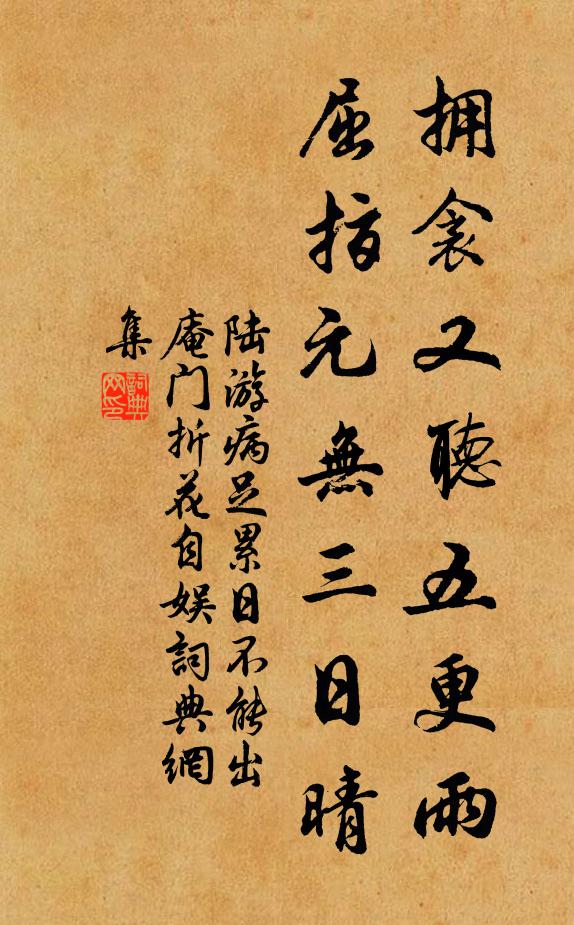 拥衾又聽五更雨
屈指元無三日晴
陆游病足累日不能出
庵門折花自娱詞典網
集
詞典
网印